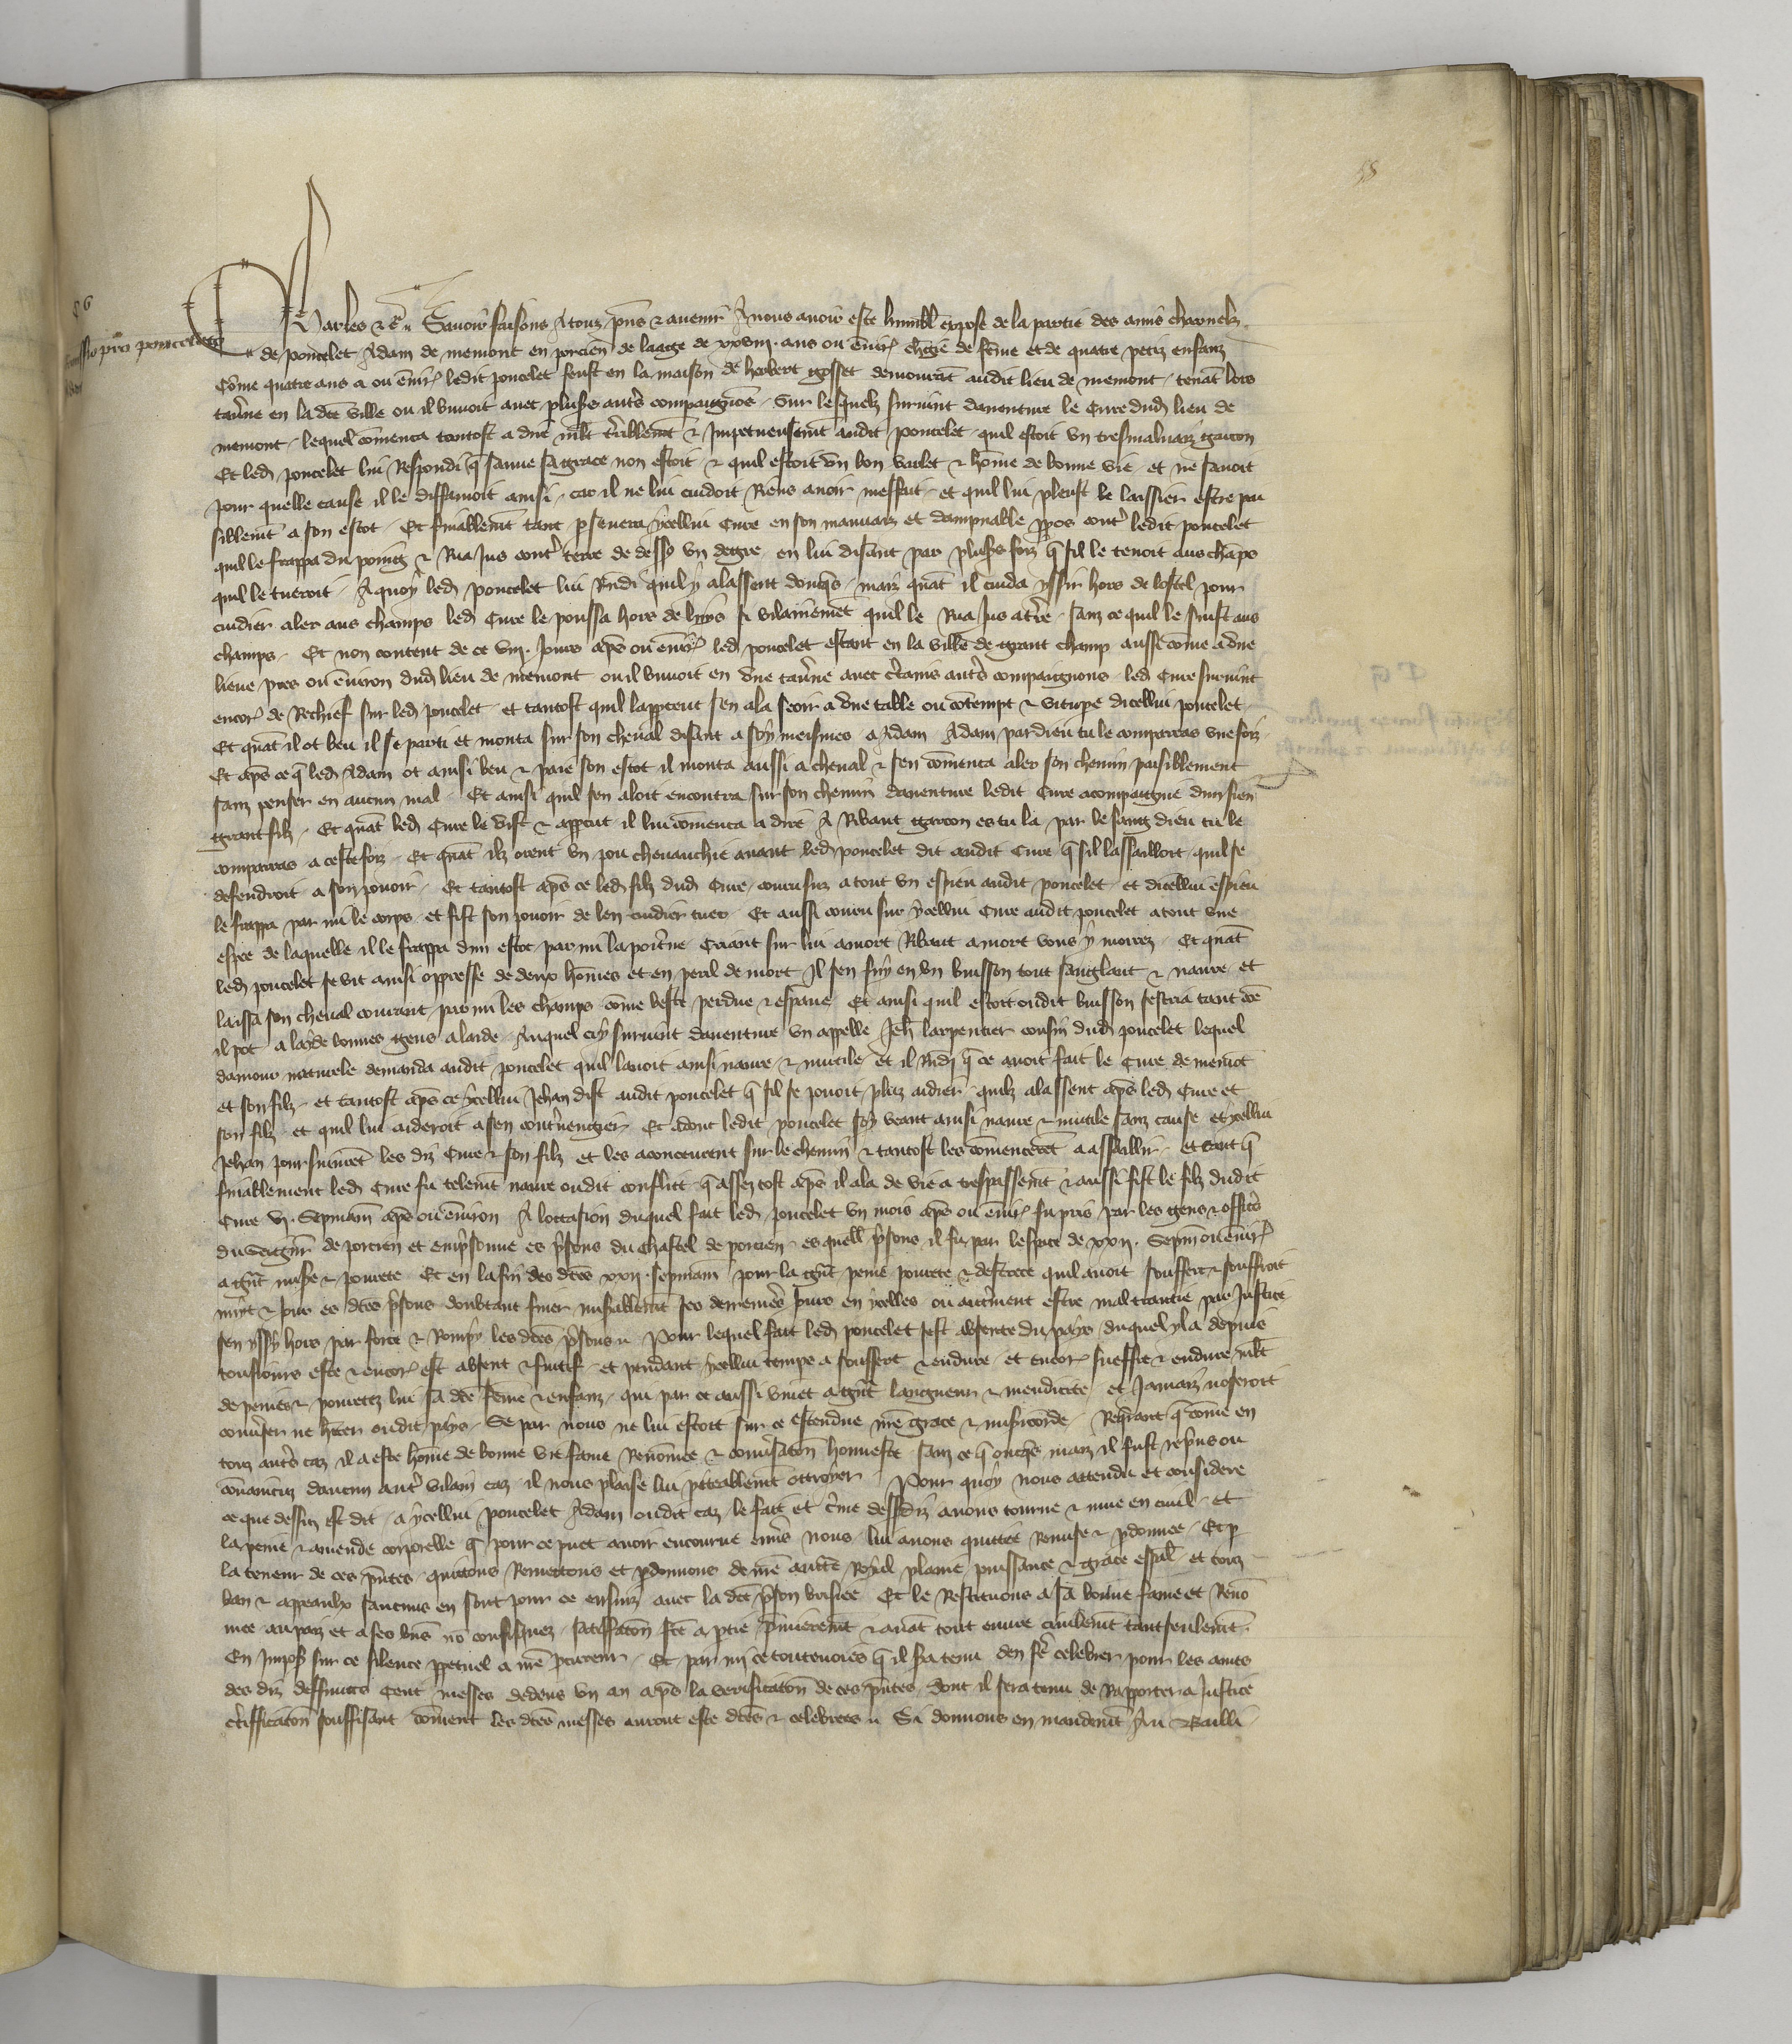 55
56
Remissio pro ponceleto
Adam
Charles &c. Savoir faisons A touz pns & avenir A nous avoir este humblt expose de la partie des amis charnelz
de poncelet Adam de memont en porcien de laage de xxviij. ans ou envir chgie de feme et de quatre petiz enfanz
Come quatre ans a ou envir ledit poncelet feust en la maison de herbert gosset demourat audit lieu de memont tenat lors
tavne en la dte ville ou il buvoit avec plusrs autrs compaignos Sur lesquelz survint daventure le Cure dud lieu de
memont lequel comenca tantost a dire mlt tribleint & Impetueuseint audit poncelet quil estoit un tresmalvaiz garcon
Et led poncelet lui Respondi q sauve sa grace non estoit & quil estoit un bon varlet & home de bonne vie et ne savoit
pour quelle cause il le diffamoit ainsi car il ne lui cuidoit Riens avoir meffait et quil lui pleust le laissier estre pai
siblemt a son escot Et finablemt tant psevera ycellui Cure en son mauvaiz et dampnable ppos contr ledit poncelet
quil le frappa du poing & Rua Jus contr terre de dessus un degre en lui disant par plusrs foiz q sil le tenoit aus chaps
quil le tueroit A quoy led poncelet lui Rndi quil y alassent donqs mais quat il cuida yssir hors de lostel pour
cuidier aler aus champs led Cure le poussa hors de luys si vilainemet quil le Rua Jus a tre sanz ce quil le suist aus
champs Et non content de ce viij. Jours aps ou envir led poncelet estant en la ville de grant champ aussi come a dne
lieue pres ou environ dud lieu de memont ou il buvoit en une tavne avec ctains autrs compaignons led Cure survint
encor de Rechief sur led poncelet et tantost quil lappceut sen ala seoir a une table ou cotempt & vitupe dicellui poncelet
Et quat il ot beu il se parti et monta sur son cheval disant a soy meismes a Adam Adam par dieu tu le comparras une foiz
Et aps ce q led Adam ot ainsi beu & paie son escot il monta aussi a cheval & sen comenca aler son chemin paisiblement
sanz penser en aucun mal Et ainsi quil sen aloit encontra sur son chemin daventure ledit Cure acompaigne dun sien
grant filz Et quat led Cure le vist & appceut il lui comenca a dire A Ribaut garcon es tu la par le sang dieu tu le
comparras a ceste foiz Et quat ilz orent un pou chevauchie avant led poncelet dit audit Cure q sil lassailloit quil se
defendroit a son povoir Et tantost aps ce led filz dud Cure couru sus a tout un espieu audit poncelet et dicellui espieu
le frappa par mi le corps et fist son povoir de len cuidier tuer Et aussi couru sur ycellui Cure audit poncelet atout une
espee de laquelle il le frappa dun estoc par mi la poitrne Criant sur lui a mort Ribaut a mort vous y morrez Et quat
led poncelet se vit ainsi oppresse de deux homes et en peril de mort Il sen fuy en un buisson tout sanglant & navre et
laissa son cheval courant par mi les champs come beste perdue & espave Et ainsi quil estoit oudit buisson sescria tant come
il pot a layde bonnes gens a larde Auquel cry survint daventure un appelle Jeh larpentier cousin dud poncelet lequel
damour naturele demanda audit poncelet quil lavoit ainsi navre & mutile et il Rndi q ce avoit fait le Cure de memot
et son filz et tantost aps ce ycellui Jehan dist audit poncelet q sil se povoit plus aidier quilz alassent aps led Cure et
son filz et quil lui aideroit a sen contrvengier Et adont ledit poncelet soy veant ainsi navre & mutile sanz cause et ycellui
Jehan poursuiret les diz Cure & son filz et les aconceurent sur le chemin & tantost les comenceret a assaillir et tant q
finablement led Cure fu telemt navre oudit conflict q assez tost aps il ala de vie a trespassemt & aussi fist le filz dudit
Cure vj. Sepmain aps ou environ A loccasion duquel fait led poncelet un mois aps ou envir fu pris par les gens & officrs
du Seignr de porcien et emprsonne es prsons du chastel de porcien es quell prsons il fu par lespace de xxij. Sepm ou envir
a gnt misre & povrete Et en la fin des dtes xxij. sepmain pour la gnt peine povrete & destrece quil avoit souffert & souffroit
nuyt & Jour es dtes prsons doubtant finer misablemt ses derreniers Jours en ycelles ou autrment estre mal traictie par Justice
sen yssy hors par force & Rompy les dtes prsons Pour lequel fait led poncelet sest absente du pays duquel yl a depuis
tousiours este & encor est absent & fuitif et pendant ycellui temps a souffert & endure et encor sueffre & endure mlt
de peines & povretez lui sa dte feme & enfanz qui par ce aussi vivet a gnt langueur & mendicite et Jamaiz noseroit
convser ne hter oudit pays Se par nous ne lui estoit sur ce estendue nre grace & misicorde Requrant q come en
touz autrs caz il a este home de bonne vie fame Renomee & convsaton honneste sanz ce q oncqs mais il fust reprns ou
convaincuz daucun autr vilain caz il nous plaise lui piteablemt ottroyer Pour quoy nous attendu et considere
ce que dessus est dit a ycellui poncelet Adam oudit caz le fait et cme dessusdiz avons tourne & mue en civil et
la peine & amende corporelle q pour ce puet avoir encourue envrs nous lui avons quittee Remise & pdonnee Et p
la teneur de ces pntes quittons Remettons et pdonnons de nre autte Royal plaine puissance & grace espal et touz
ban & appeaulx saucuns en sont pour ce ensuiz avec la dte prson brisiee Et le Restituons a sa bonne fame et Reno
mee au pays et a ses bns no confisquez satisfaton fte a ptie pmieremt & avat tout euvre civilemt tant seulemt
En Imposs sur ce silence ppetuel a nre pcureur Et par mi ce toutevoies q il sra tenu den fe celebrer pour les ames
des diz deffuncts Cent messes dedens un an aps la verificaton de ces pntes dont il sera tenu de Rapporter a Justice
crtifficaton souffisant coment les dtes messes auront este dtes & celebrees Si donnons en mandemt Au Bailli